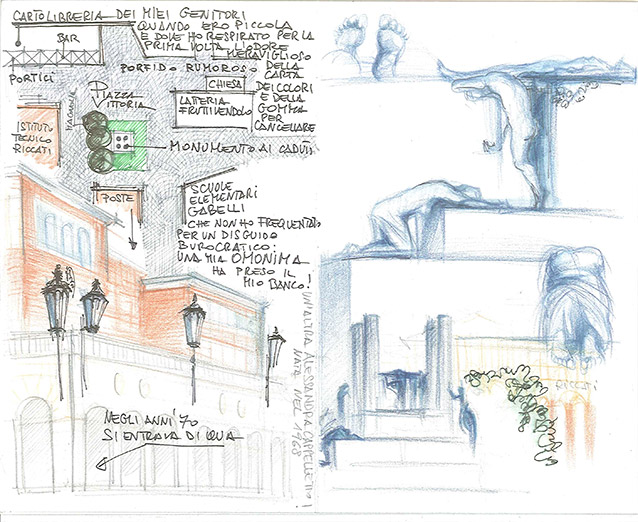 CARTOLIBRERIA DEI MIEI GENITORI
QUANDO ERO PICCOLA
E DOVE HO RESPIRATO PER LA
PRIMA VOLTA L'ODORE
MERAVIGLIOSO
DELLA
CARTA
DEI COLORI
E DELLA
GOMMA
PER
CANCELLARE
BAR
PORTICI
PORFIDO RUMOROSO
CHIESA
LATTERIA
FRUTTIVENDOLO
PIAZZA
VITTORIA
ISTITUTO
TECNICO
RICCATI
MONUMENTO AI CADUTI
POSTE
SCUOLE
ELEMENTARI
GABELLI
CHE NON HO FREQUENTATO
PER UN DISGUIDO
BUROCRATICO:
UNA MIA OMONIMA
HA PRESO IL
MIO BANCO!
UN'ALTRA ALESSANDRA CAPPELLETTO!
NATA NEL 1968
NEGLI ANNI '70
SI ENTRAVA DI QUA
RICCATI